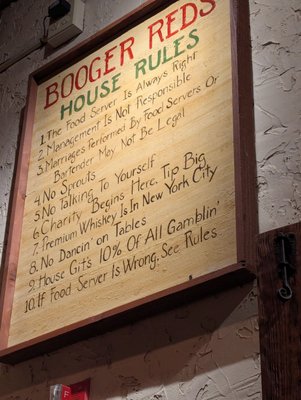 BOOGER REDS
HOUSE RULES
1. The Food Server Is Always Right
2. Management Is Not Responsible
3. Marriages Performed By Food Servers Or
Bartender May Not Be Legal
4. No Sprouts
5. No Talking To Yourself
6. Charity Begins Here. Tip Big
7. Premium Whiskey Is In New York City
8. No Dancin' on Tables
9. House Git's 10% Of All Gamblin'
10. If Food Server Is Wrong. See Rules